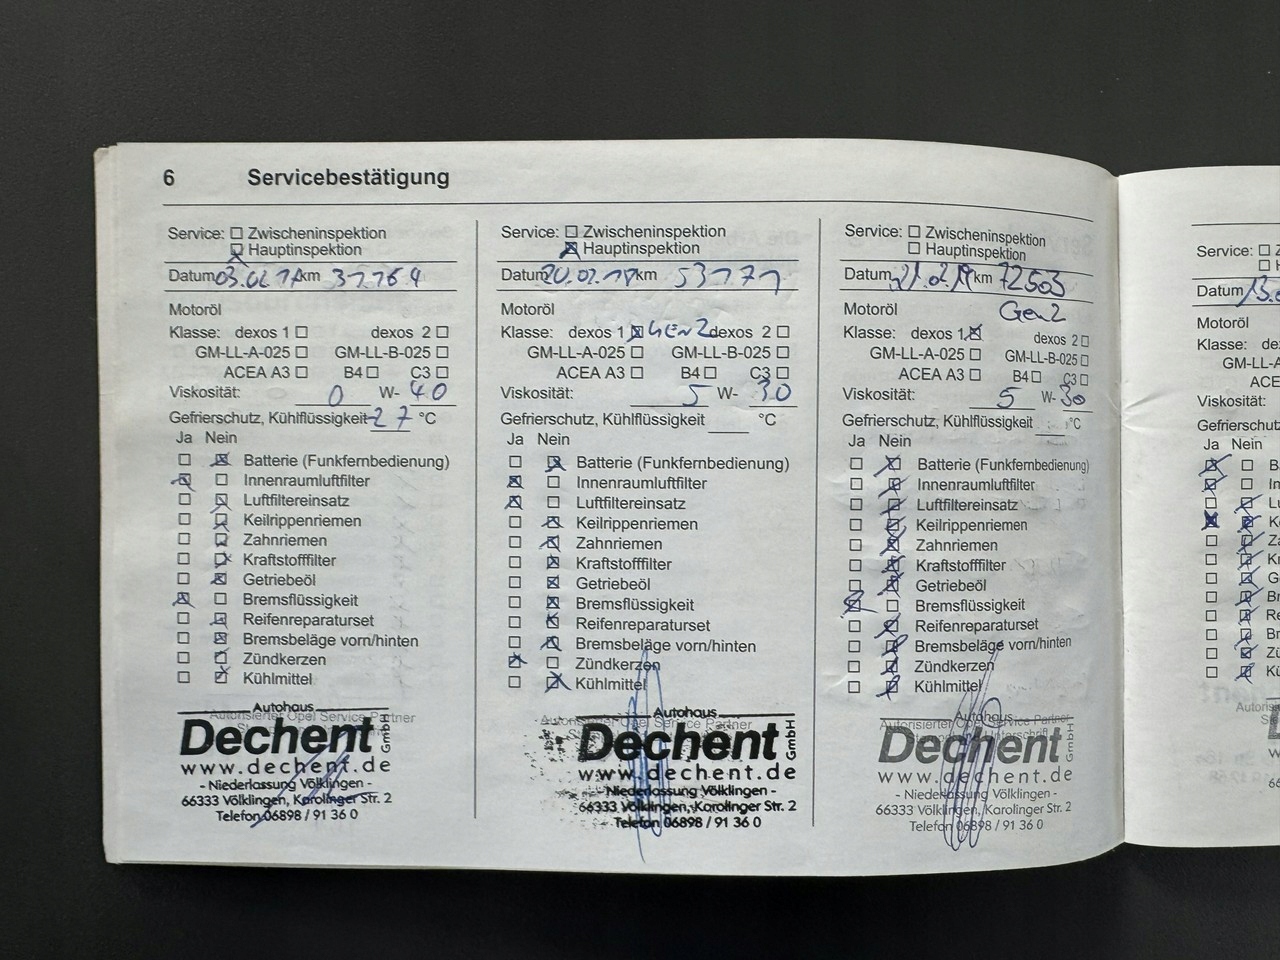 6 Servicebestätigung
Service: ☐ Zwischeninspektion
☒ Hauptinspektion
Datum 03.02.17 km 31.764
Motoröl
Klasse: dexos 1 ☐ dexos 2 ☐
GM-LL-A-025 ☐ GM-LL-B-025 ☐
ACEA A3 ☐ B4 ☐ C3 ☐
Viskosität: 0 W- 40
Gefrierschutz, Kühlflüssigkeit -27 °C
Ja Nein
☐ ☒ Batterie (Funkfernbedienung)
☒ ☐ Innenraumluftfilter
☐ ☒ Luftfiltereinsatz
☐ ☒ Keilrippenriemen
☐ ☒ Zahnriemen
☐ ☒ Kraftstofffilter
☐ ☒ Getriebeöl
☒ ☐ Bremsflüssigkeit
☐ ☒ Reifenreparaturset
☐ ☒ Bremsbeläge vorn/hinten
☐ ☒ Zündkerzen
☐ ☒ Kühlmittel
Autorisierter Opel Service Partner
Autohaus
Dechent GmbH
www.dechent.de
- Niederlassung Völklingen -
66333 Völklingen, Karolinger Str. 2
Telefon 06898 / 91 36 0
Service: ☐ Zwischeninspektion
☒ Hauptinspektion
Datum 20.02.18 km 53171
Motoröl
Klasse: dexos 1 ☒ GEN2 dexos 2 ☐
GM-LL-A-025 ☐ GM-LL-B-025 ☐
ACEA A3 ☐ B4 ☐ C3 ☐
Viskosität: 5 W- 30
Gefrierschutz, Kühlflüssigkeit °C
Ja Nein
☐ ☒ Batterie (Funkfernbedienung)
☒ ☐ Innenraumluftfilter
☒ ☐ Luftfiltereinsatz
☐ ☒ Keilrippenriemen
☐ ☒ Zahnriemen
☐ ☒ Kraftstofffilter
☐ ☒ Getriebeöl
☐ ☒ Bremsflüssigkeit
☐ ☒ Reifenreparaturset
☐ ☒ Bremsbeläge vorn/hinten
☒ ☐ Zündkerzen
☐ ☒ Kühlmittel
Autorisierter Opel Service Partner
Autohaus
Dechent GmbH
www.dechent.de
- Niederlassung Völklingen -
66333 Völklingen, Karolinger Str. 2
Telefon 06898 / 91 36 0
Service: ☐ Zwischeninspektion
☐ Hauptinspektion
Datum 21.2.19 km 72503
Motoröl Gen2
Klasse: dexos 1 ☒ dexos 2 ☐
GM-LL-A-025 ☐ GM-LL-B-025 ☐
ACEA A3 ☐ B4 ☐ C3 ☐
Viskosität: 5 W- 30
Gefrierschutz, Kühlflüssigkeit °C
Ja Nein
☐ ☒ Batterie (Funkfernbedienung)
☐ ☒ Innenraumluftfilter
☐ ☒ Luftfiltereinsatz
☐ ☒ Keilrippenriemen
☐ ☒ Zahnriemen
☐ ☒ Kraftstofffilter
☐ ☒ Getriebeöl
☒ ☐ Bremsflüssigkeit
☐ ☒ Reifenreparaturset
☐ ☒ Bremsbeläge vorn/hinten
☐ ☒ Zündkerzen
☐ ☒ Kühlmittel
Autorisierter Opel Service Partner
Autohaus
Dechent GmbH
www.dechent.de
- Niederlassung Völklingen -
66333 Völklingen, Karolinger Str. 2
Telefon 06898 / 91 36 0
Service: ☐ Z
☐ H
Datum
Motoröl
Klasse: de
GM-LL-A
ACE
Viskosität:
Gefrierschutz
Ja Nein